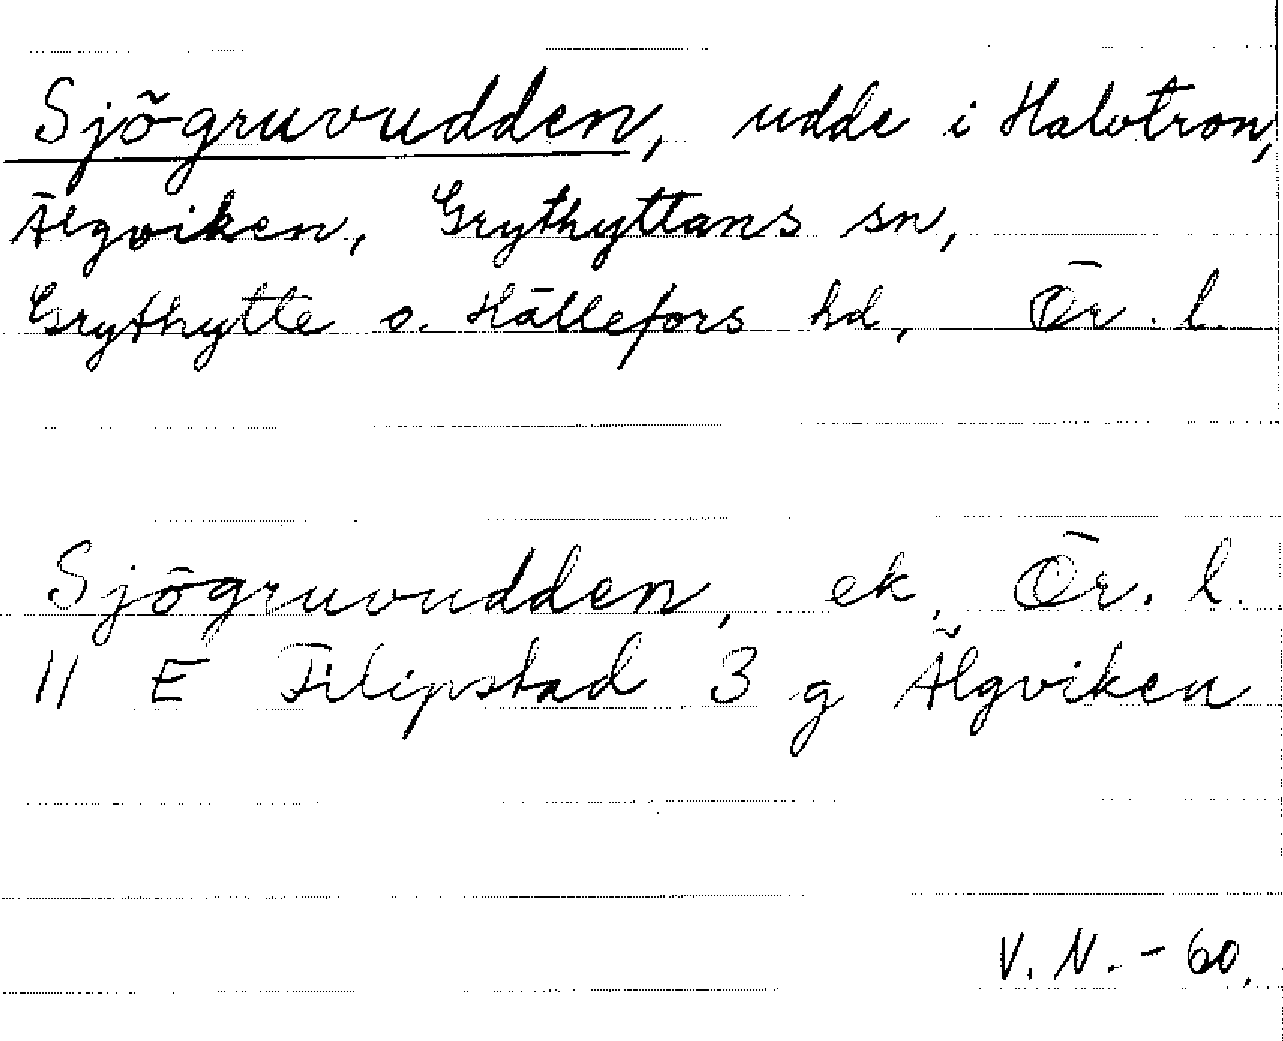 Sjögruvudden, udde i Halvtron,
Älgviken, Grythyttans sn,
Grythytte o. Hällefors hd, Ör. l.
Sjögruvudden, ek, Ör. l.
11 E Filipstad 3 g Älgviken
V. N. - 60.